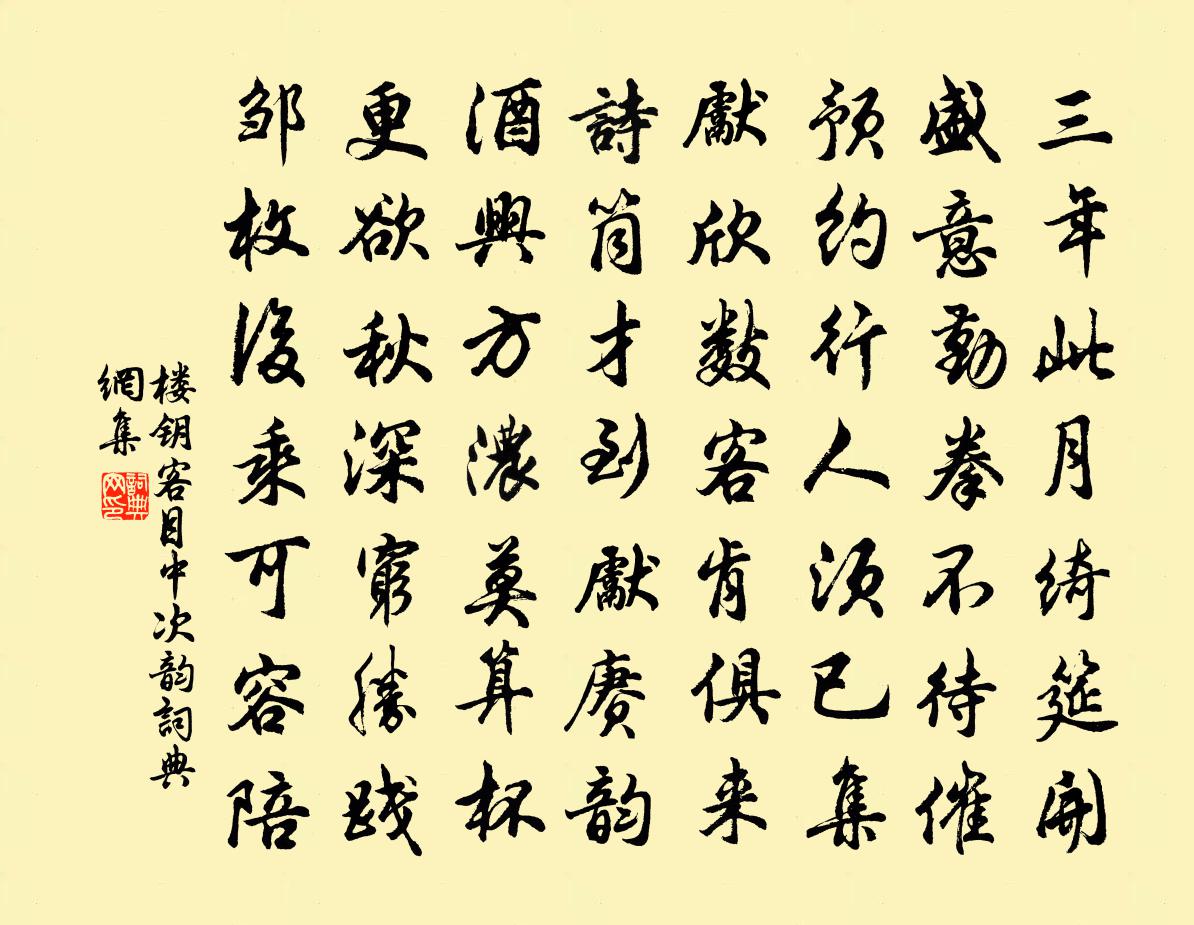 三年此月绮筵開
盛意勤拳不待催
预约行人须已集
獻欣数客肯俱来
詩筒才到獻赓韵
酒興方濃莫算杯
更欲秋深窮勝践
邹枚後乘可容陪
楼钥客目中次韵詞典
網集
詞典网印